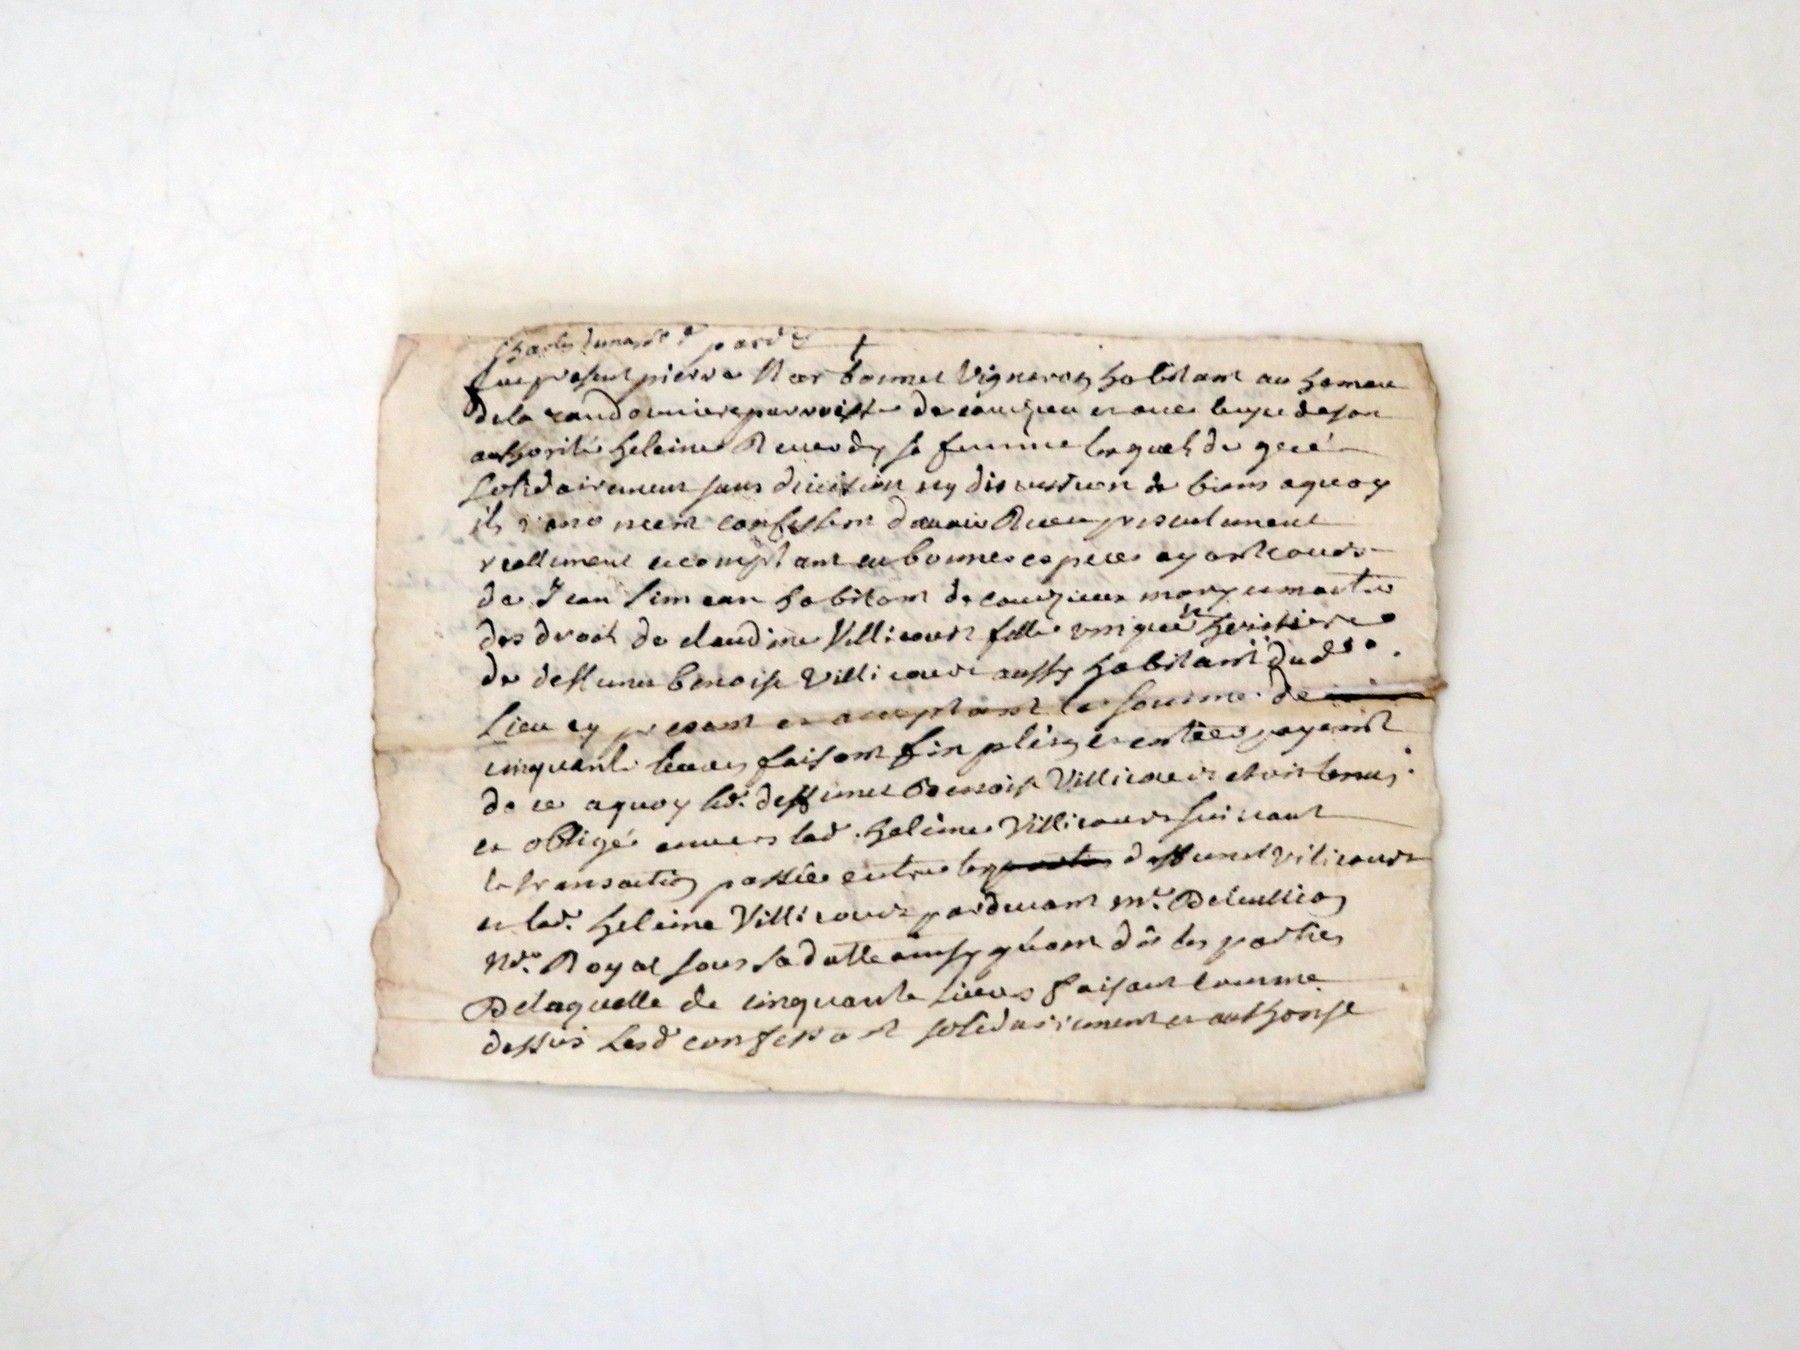 pard
fut present pierre bonnet Vigneron habitant au hameau
de la parroisse de et de son
authorité heleine sa femme lesquels de gré
solidairement sans division ny discution de biens aquoy
ils renonceent confessent davoir Receu presentement
reellement et comptant en bonnes especes ayant cours
de Jean habitant de mary et maitre
des droit de claudine Villicourt fille unique et heritiere
de deffunct benoist Villicourt aussy habitant dud
Lieu cy present et acceptant la somme de
cinquante livres faisant fin et entier payemt
de ce aquoy led. deffunct Benoist Villicourt etoit tenus
et obligé envers lad. heleine Villicourt suivant
la transaction passée entre les parties deffunct Vilicourt
et lad. heleine Villicourt pardevant Mr.
Nre. Royal sous sa datte ainsy quont dit les parties
De laquelle de cinquante Livres faisant comme
dessus Lesd confessant solidairement et authorisé